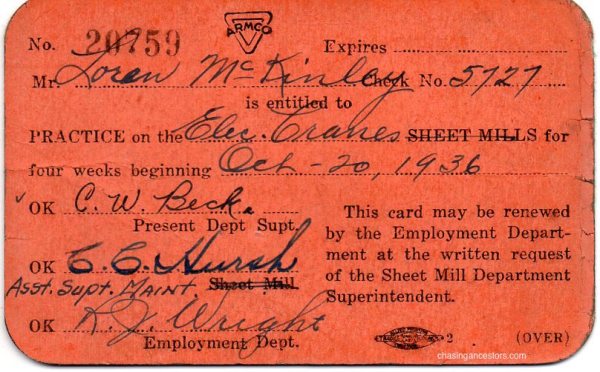 No. 20759 ARMCO Expires
Mr. Loren McKinley Check No. 5727
is entitled to
PRACTICE on the Elec. Cranes SHEET MILLS for
four weeks beginning Oct-20, 1936
OK C. W. Beck.
Present Dept Supt.
OK C. C. Hursh
Asst. Supt. MAINT Sheet Mill
OK R. J. Wright
Employment Dept.
This card may be renewed
by the Employment Depart-
ment at the written request
of the Sheet Mill Department
Superintendent.
2 (OVER)
chasingancestors.com